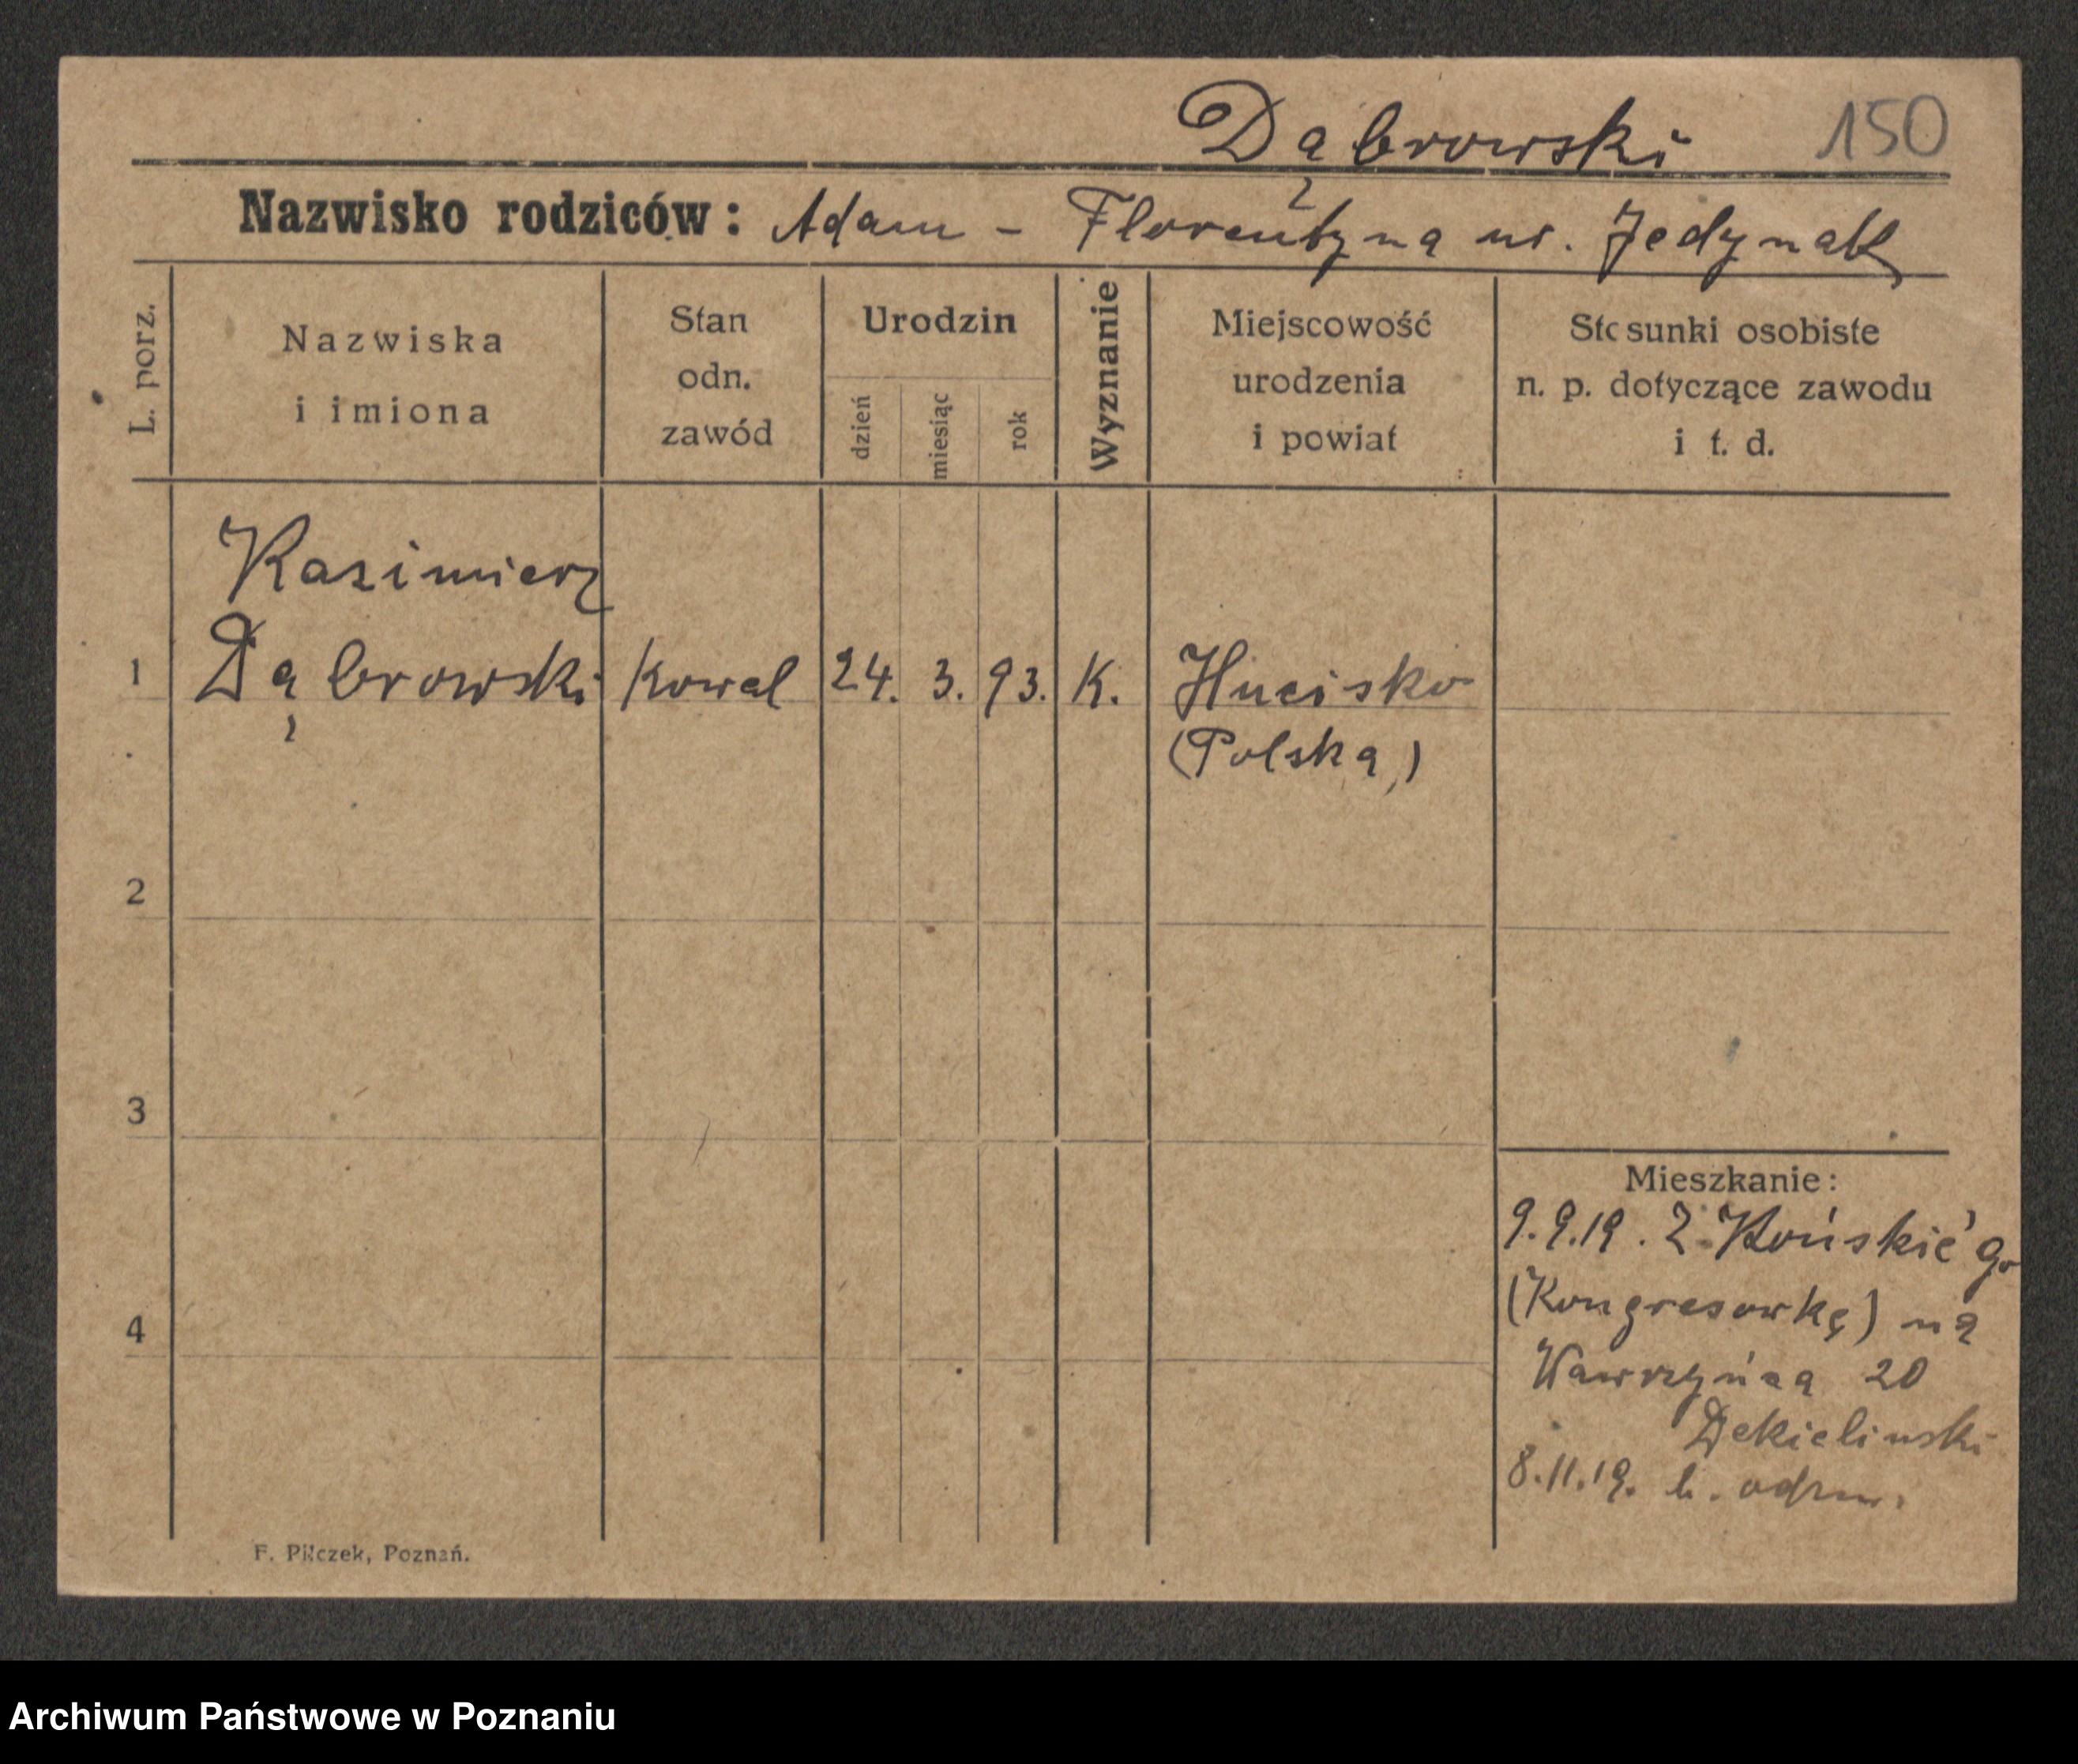 Dąbrowski 150
Nazwisko rodziców: Adam – Florentyna ur. Jedynak
L. porz.
Nazwiska
i imiona
Stan
odn.
zawód
Urodzin
dzień
miesiąc
rok
Wyznanie
Miejscowość
urodzenia
i powiat
Stosunki osobiste
n. p. dotyczące zawodu
i t. d.
Kazimierz
1 Dąbrowski Kowal 24. 3. 93. K. Hucisko
(Polska)
2
3
4
Mieszkanie:
9.9.19. Z Końskiégo
(Kongresowkę) na
Wawrzyńca 20
Dekielinski
8.11.19.
F. Pilczek, Poznań.
Archiwum Państwowe w Poznaniu